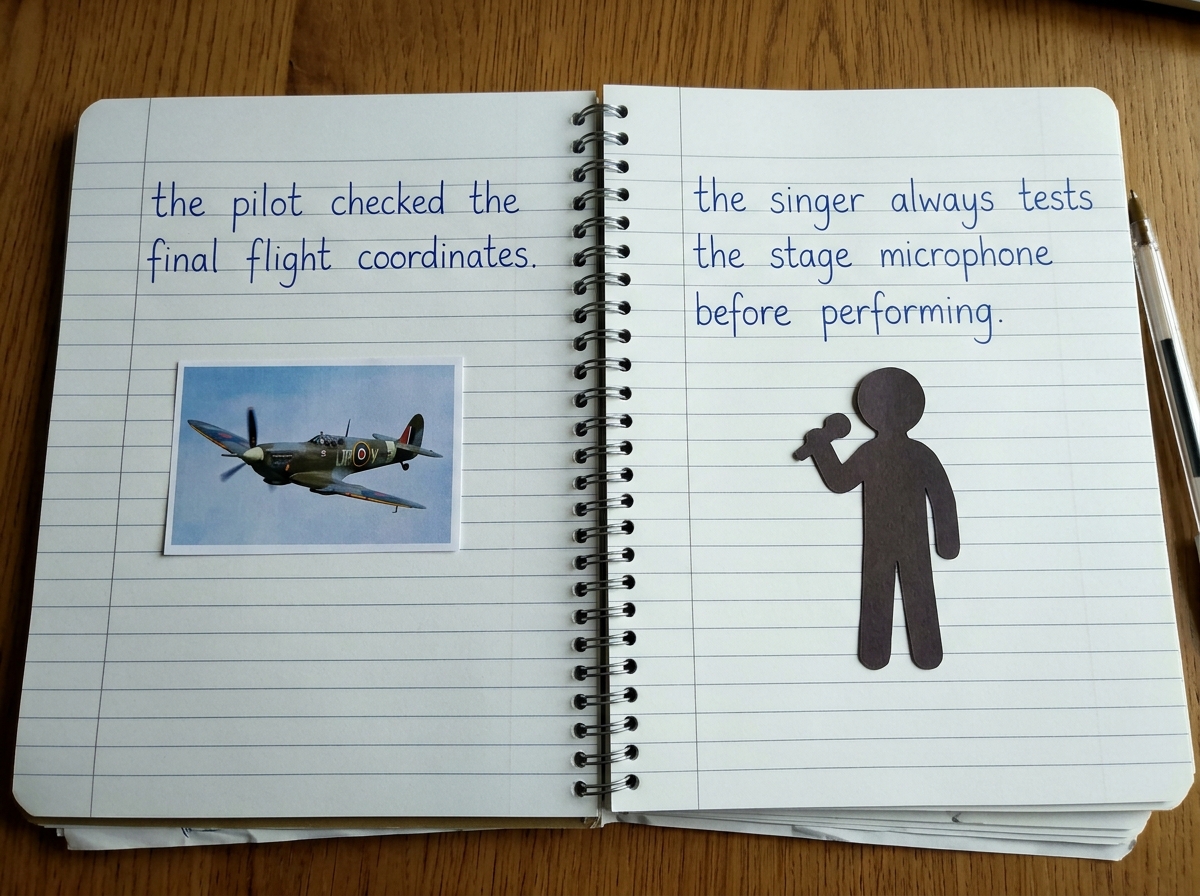 the pilot checked the
final flight coordinates.
the singer always tests
the stage microphone
before performing.